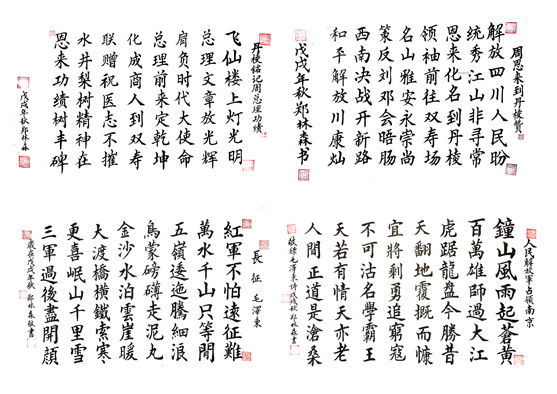 丹棱铭记周总理功绩
飞仙楼上灯光明
总理文章放光辉
肩负时代大使命
总理前来定乾坤
化成商人到双寿
联赠祝医志不摧
水井梨树精神在
恩来功绩树丰碑
戊戌年秋郑林森
周恩来到丹棱赞
解放四川人民盼
统秀江山非寻常
恩来化名到丹棱
领袖前往双寿场
名山雅安永崇尚
策反刘邓会晤肠
西南决战开新路
和平解放川康灿
戊戌年秋郑林森书
長征 毛澤東
紅軍不怕遠征難
萬水千山只等閒
五嶺逶迤騰細浪
烏蒙磅礴走泥丸
金沙水泊雲崖暖
大渡橋橫鐵索寒
更喜岷山千里雪
三軍過後盡開顏
歲在戊戌年秋 郑林森敬書
人民解放軍占領南京
鐘山風雨起蒼黃
百萬雄師過大江
虎踞龍盤今勝昔
天翻地覆慨而慷
宜將剩勇追窮寇
不可沽名學霸王
天若有情天亦老
人間正道是滄桑
敬錄毛澤東詩戊戌秋郑林森書